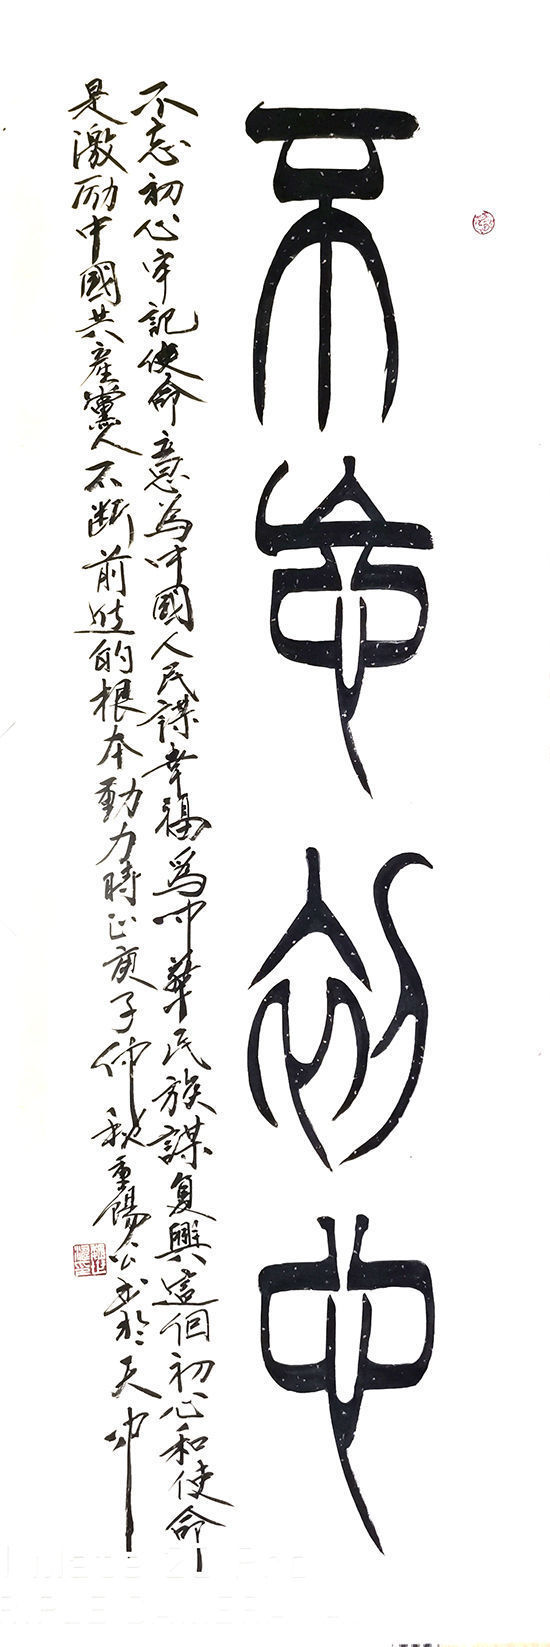 不忘初心
不忘初心牢記使命意為中國人民謀幸福為中華民族謀复興這個初心和使命
是激励中國共產黨人不断前進的根本動力時正庚子仲秋重陽公书於天中
Mate 20 Pro